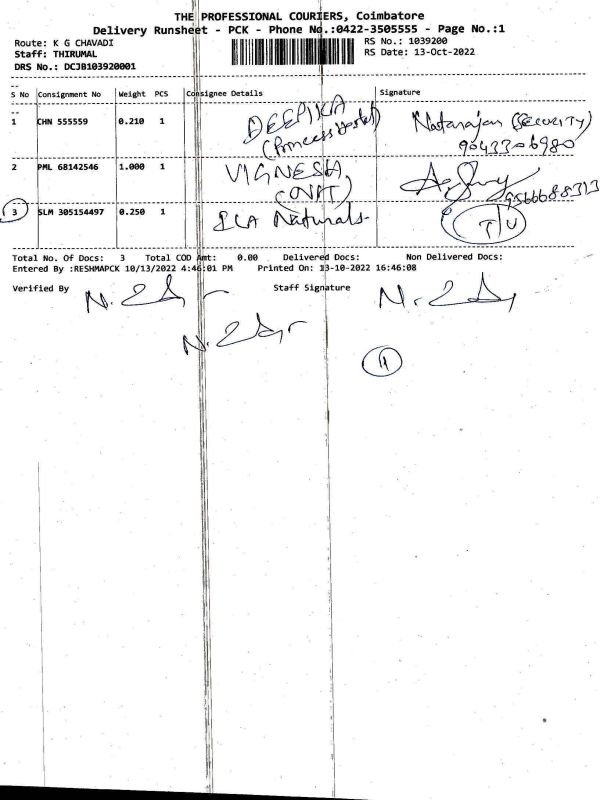 THE PROFESSIONAL COURIERS, Coimbatore
Delivery Runsheet - PCK - Phone No.:0422-3505555 - Page No.:1
Route: K G CHAVADI
Staff: THIRUMAL
DRS No.: DCJB103920001
RS No.: 1039200
RS Date: 13-Oct-2022
S No Consignment No Weight PCS Consignee Details Signature
1 CHN 555559 0.210 1 DEEPIKA Natarajan (SECURITY)
(Princess Hostel) 9043306980
2 PML 68142546 1.000 1 VIGNESH, 9566688313
3 SLM 305154497 0.250 1 ILA Naturals- T/U
Total No. Of Docs: 3 Total COD Amt: 0.00 Delivered Docs: Non Delivered Docs:
Entered By :RESHMAPCK 10/13/2022 4:46:01 PM Printed On: 13-10-2022 16:46:08
Verified By Staff Signature